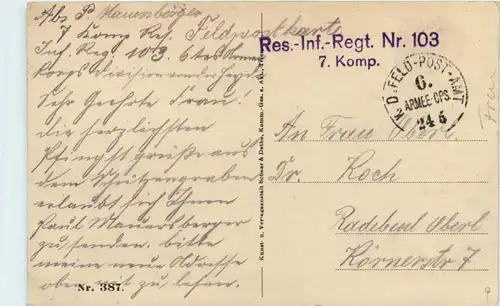 Abs. P. Mauersberger
7 Komp Res. Feldpostkarte
Inf. Reg 103. 6tes Armee
korps Division von der
Sehr Geehrte Frau!
die herzlichsten
Pfingstgrüße aus
dem Schützengraben
erlaubt sich Ihnen
Paul Mauersberger
zu senden. bitte
meine neue Adresse
oben mit zu lesen.
Nr. 387.
Kunst- u. Verlagsanstalt Schaar & Dathe, Komm.-Ges. a. Akt., Trier
Res.-Inf.-Regt. Nr. 103
7. Komp.
K. D. FELD-POST-AMT
6.
ARMEE-CPS.
24 5
An Frau Oberl.
Dr. Koch
Radebeul Oberl
Körnerstr 7